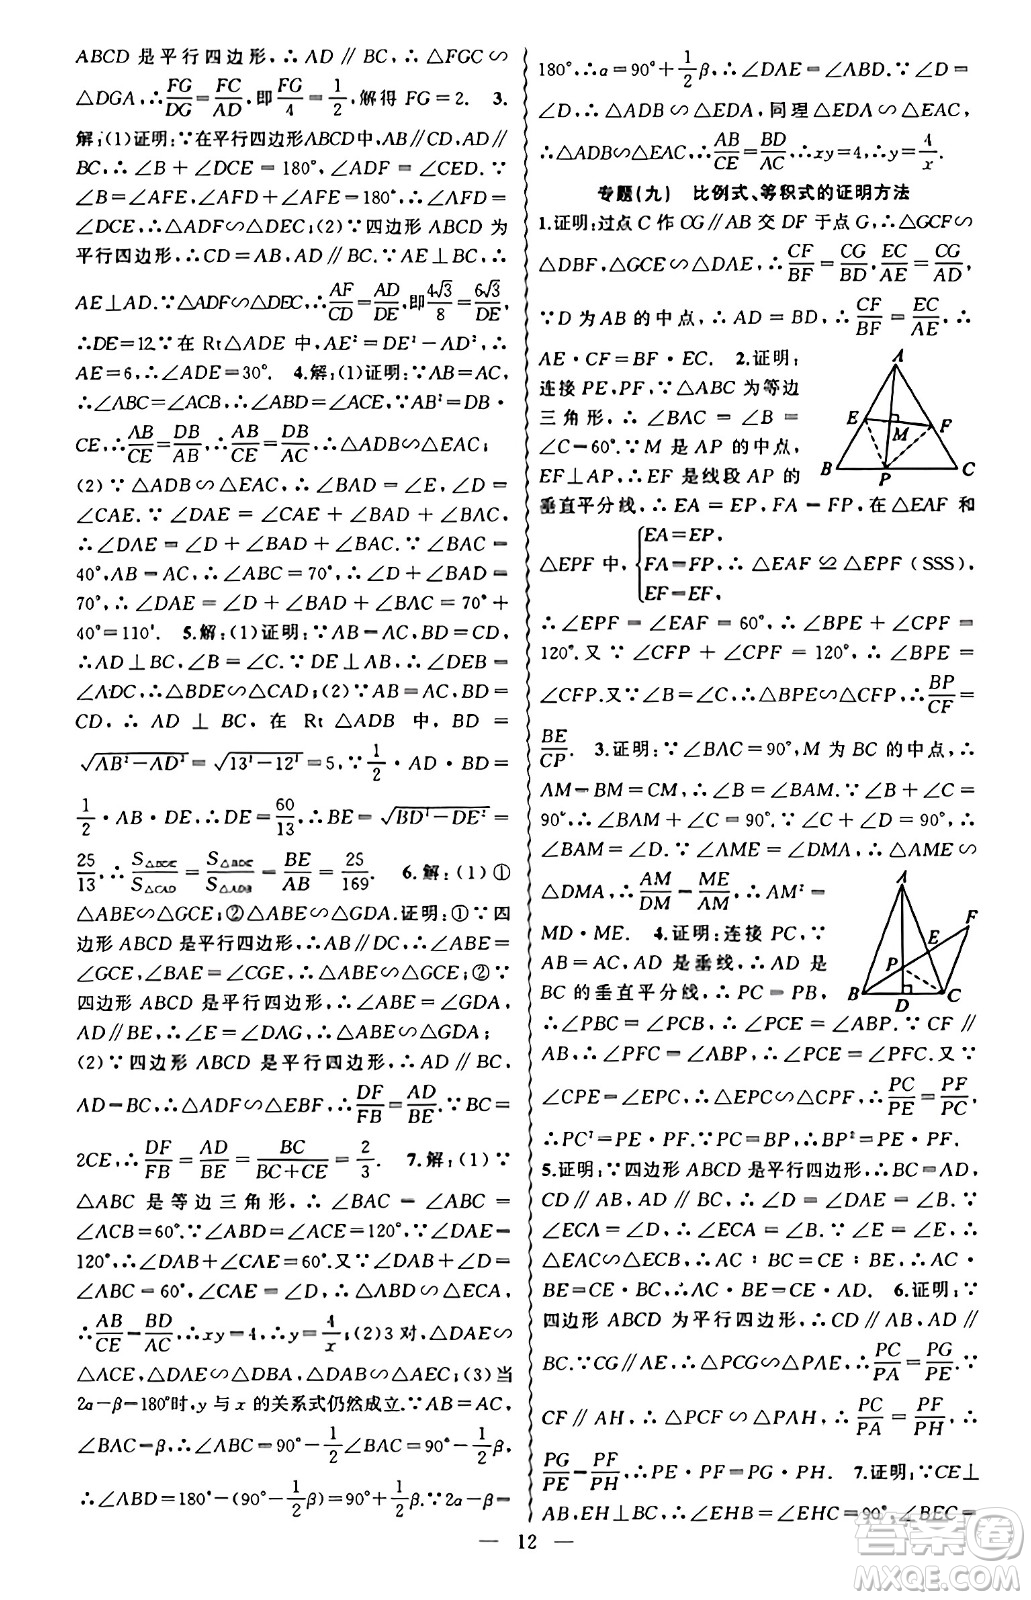 ABCD 是平行四边形,∴AD∥BC,∴△FGC∽
△DGA,∴FG/DG=FC/AD,即FG/4=1/2,解得 FG=2. 3.
解:(1)证明:∵在平行四边形ABCD中,AB∥CD,AD∥
BC,∴∠B+∠DCE=180°,∠ADF=∠CED.∵
∠B=∠AFE,∠AFD+∠AFE=180°,∴∠AFD=
∠DCE,∴△ADF∽△DEC;(2)∵四边形 ABCD 为
平行四边形,∴CD=AB,AD∥BC.∵AE⊥BC,∴
AE⊥AD.∵△ADF∽△DEC,∴AF/CD=AD/DE,即4√3/8=6√3/DE,
∴DE=12.∵在 Rt△ADE 中,AE²=DE²-AD²,∴
AE=6,∴∠ADE=30°. 4.解:(1)证明:∵AB=AC,
∴∠ABC=∠ACB,∴∠ABD=∠ACE.∵AB²=DB·
CE,∴AB/CE=DB/AB,∴AB/CE=DB/AC,∴△ADB∽△EAC;
(2)∵△ADB∽△EAC,∴∠BAD=∠E,∠D=
∠CAE.∵∠DAE=∠CAE+∠BAD+∠BAC,
∴∠DAE=∠D+∠BAD+∠BAC.∵∠BAC=
40°,AB=AC,∴∠ABC=70°,∴∠D+∠BAD=
70°,∴∠DAE=∠D+∠BAD+∠BAC=70°+
40°=110°. 5.解:(1)证明:∵AB=AC,BD=CD,
∴AD⊥BC,∠B=∠C.∵DE⊥AB,∴∠DEB=
∠ADC,∴△BDE∽△CAD;(2)∵AB=AC,BD=
CD,∴AD⊥BC,在 Rt△ADB 中,BD=
√AB²-AD²=√13²-12²=5,∵1/2·AD·BD=
1/2·AB·DE,∴DE=60/13,∴BE=√BD²-DE²=
25/13,∴S△BDE/S△CAD=S△BDE/S△ADB=BE/AB=25/169. 6.解:(1)①
△ABE∽△GCE;②△ABE∽△GDA.证明:①∵四
边形 ABCD 是平行四边形,∴AB∥DC,∴∠ABE=
∠GCE,∠BAE=∠CGE,∴△ABE∽△GCE;②∵
四边形 ABCD 是平行四边形,∴∠ABE=∠GDA,
AD∥BE,∴∠E=∠DAG,∴△ABE∽△GDA;
(2)∵四边形 ABCD 是平行四边形,∴AD∥BC,
AD=BC,∴△ADF∽△EBF,∴DF/FB=AD/BE.∵BC=
2CE,∴DF/FB=AD/BE=BC/BC+CE=2/3. 7.解:(1)∵
△ABC 是等边三角形,∴∠BAC=∠ABC=
∠ACB=60°.∵∠ABD=∠ACE=120°,∠DAE=
120°,∴∠DAB+∠CAE=60°.又∵∠DAB+∠D=
∠ABC=60°,∴∠CAE=∠D,∴△ABD∽△ECA,
∴AB/CE=BD/AC,∴xy=4,∴y=4/x;(2)3 对,△DAE∽
△ACE,△DAE∽△DBA,△DAB∽△AEC;(3)当
2α-β=180°时,y 与 x 的关系式仍然成立.∵AB=AC,
∠BAC=β,∴∠ABC=90°-1/2β,∠BAC=90°-1/2β,
∴∠ABD=180°-(90°-1/2β)=90°+1/2β.∵2α-β=
180°,∴α=90°+1/2β,∴∠DAE=∠ABD.∵∠D=
∠D,∴△ADB∽△EDA,同理△EDA∽△EAC,
∴△ADB∽△EAC,∴AB/CE=BD/AC,∴xy=4,∴y=4/x.
专题(九) 比例式、等积式的证明方法
1.证明:过点 C 作 CG∥AB 交 DF 于点 G,∴△GCF∽
△DBF,△GCE∽△DAE,∴CF/BF=CG/BD,EC/AE=CG/AD,
∵D 为 AB 的中点,∴AD=BD,∴CF/BF=EC/AE,∴
AE·CF=BF·EC. 2.证明:
连接 PE,PF,∵△ABC 为等边
三角形,∴∠BAC=∠B=
∠C=60°.∵M 是 AP 的中点,
EF⊥AP,∴EF 是线段 AP 的
垂直平分线,∴EA=EP,FA=FP,在△EAF 和
△EPF 中,{EA=EP,
FA=FP,∴△EAF≌△EPF(SSS),
EF=EF,
∴∠EPF=∠EAF=60°,∴∠BPE+∠CPF=
120°.又∵∠CFP+∠CPF=120°,∴∠BPE=
∠CFP.又∵∠B=∠C,∴△BPE∽△CFP,∴BP/CF=
BE/CP. 3.证明:∵∠BAC=90°,M 为 BC 的中点,∴
AM=BM=CM,∴∠B=∠BAM.∵∠B+∠C=
90°,∠BAM+∠MAC=90°,∠D+∠C=90°,∴
∠BAM=∠D.又∵∠AME=∠DMA,∴△AME∽
△DMA,∴AM/DM=ME/AM,∴AM²=
MD·ME. 4.证明:连接 PC,∵
AB=AC,AD 是垂线,∴AD 是
BC 的垂直平分线,∴PC=PB,
∴∠PBC=∠PCB,∴∠PCE=∠ABP.∵CF∥
AB,∴∠PFC=∠ABP,∴∠PCE=∠PFC.又∵
∠CPE=∠CPF,∴△CPE∽△CPF,∴PC/PE=PF/PC,
∴PC²=PE·PF.∵PC=BP,∴BP²=PE·PF.
5.证明:∵四边形 ABCD 是平行四边形,∴BC=AD,
CD∥AB,AD∥BC,∴∠D=∠CAE=∠B.∵
∠ECA=∠D,∴∠ECA=∠B.∵∠E=∠E,∴
△EAC∽△ECB,∴AC∶BC=CE∶BE,∴AC·
BE=CE·BC,∴AC·BE=CE·AD. 6.证明:∵
四边形 ABCD 为平行四边形,∴CD∥AB,AD∥
BC.∵CG∥AE,∴△PCG∽△PAE,∴PC/PA=PG/PE.∵
CF∥AH,∴△PCF∽△PAH,∴PC/PA=PF/PH,∴
PG/PE=PF/PH,∴PE·PF=PG·PH. 7.证明:∵CE⊥
AB,EH⊥BC,∴∠EHB=∠EHC=90°,∠BEC=
A
E
F
M
B
P
C
A
F
E
P
B
D
C
— 12 —
答案圈
MXQE.COM